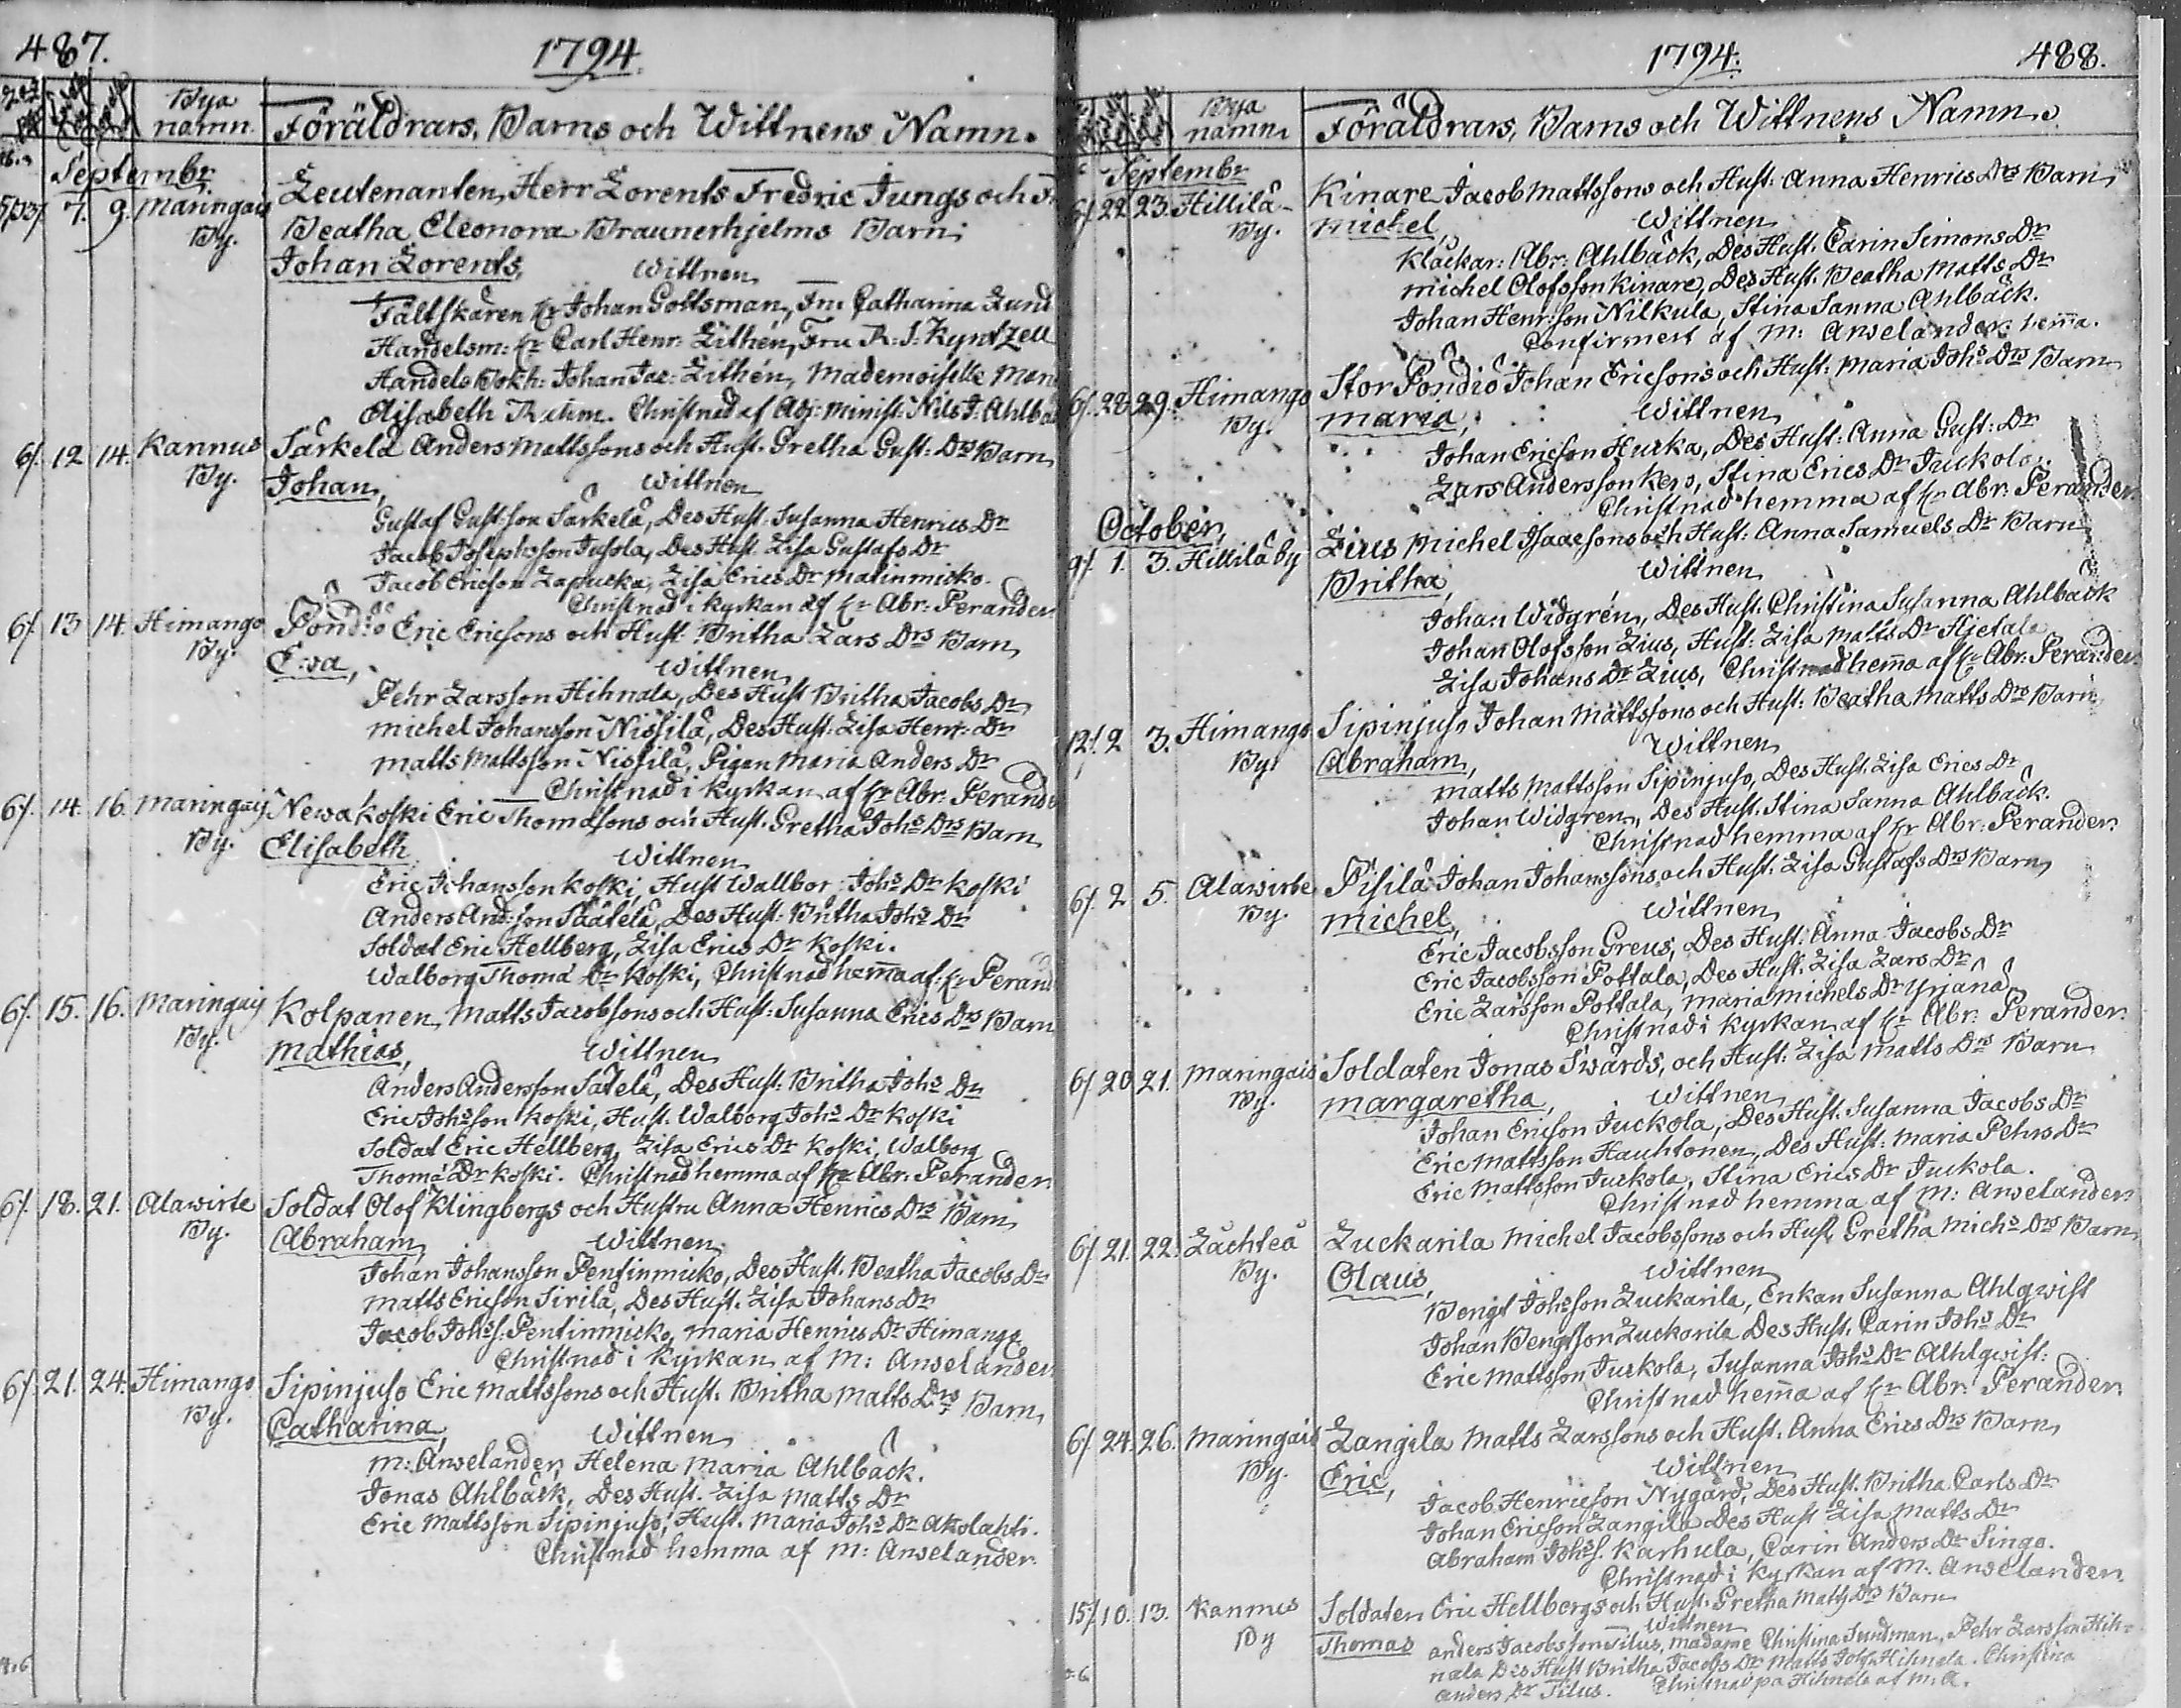 487.
1794.
Bya namn.
Föräldrars, Barns och Wittnens Namn.
Septembr
7. 9. Maringais By. Leutenanten, Herr Lorents Fredric Jungs och
Beatha Eleonora Braunerhjelms Barn
Johan Lorents, Wittnen
Fältskären Hr Johan Gottsman, Fru Catharina Lund
Handelsm: Hr Carl Henr: Lithén, Fru
Handels Bokh: Johan Jac: Lithén, Mademoiselle
Elisabeth Christnad af Adj: Minist: Nils J: Ahlbä
6/. 12 14. Kannus By. Särkelä Anders Mattssons och Hust. Gretha Gust: Drs Barn
Johan, Wittnen
Gustaf Gust:son Särkelä, Des Hust. Susanna Henrics Dr
Jacob Josephsson Jusola, Des Hust. Lisa Gustafs Dr
Jacob Ericson Lapucka, Lisa Erics Dr Matinmicko.
Christnad i kyrkan af Hr Abr: Perander
6/. 13 14. Himango By. Pöndiö Eric Ericsons och Hust: Britha Lars Drs Barn
Eva, Wittnen
Pehr Larsson Hihnala, Des Hust Britha Jacobs Dr
Michel Johansson Nissilä, Des Hust: Lisa Henr: Dr
Matts Mattsson Nissilä, Pigan Maria Anders Dr
Christnad i kyrkan af Hr Abr: Perande
6/. 14. 16. Maringaij By. Newakoski Eric Thomasons och Hust. Gretha Johs Drs Barn
Elisabeth Wittnen
Eric Johansson Koski, Hust Wallbor: Johs Dr Koski
Anders And:son Säätelä, Des Hust: Britha Johs Dr
Soldat Eric Hellberg, Lisa Erics Dr Koski.
Walborg Thoma Dr Koski, Christnad hema af Hr Perand
6/. 15. 16. Maringaij By. Kolpanen, Matts Jacobsons och Hust: Susanna Erics Drs Barn
Mathias, Wittnen
Anders Andersson Sätelä, Des Hust: Britha Johs Dr
Eric Johsson Koski, Hust. Walborg Johs Dr Koski
Soldat Eric Hellberg, Lisa Erics Dr Koski, Walborg
Thoma Dr Koski. Christnad hemma af Hr Abr: Perander
6/. 18. 21. Alawirte By. Soldat Olof Klingbergs och Hustru Anna Henrics Drs Barn
Abraham, Wittnen
Johan Johansson Pentinmicko, Des Hust. Beatha Jacobs Dr
Matts Ericson Sirila, Des Hust. Lisa Johans Dr
Jacob Johs:s. Pentinmicko, Maria Henrics Dr Himango
Christnad i Kyrkan af M: Anselander
6/. 21. 24. Himango By. Sipinjuso Eric Mattssons och Hust. Britha Matts Drs Barn,
Catharina, Wittnen
M: Anselander, Helena Maria Ahlbäck.
Jonas Ahlbäck, Des Hust. Lisa Matts Dr
Eric Mattsson Sipinjuso, Hust. Maria Johs Dr Akolahti.
Christnad hemma af M: Anselander.
1794.
488.
Bya namn.
Föräldrars, Barns och Wittnens Namn.
Septembr
6/. 22 23. Hillilä By. Kinare Jacob Mattssons och Hust: Anna Henrics Drs Barn
Michel, Wittnen
Klåckar: Abr: Ahlbäck, Des Hust. Carin Simons Dr
Michel Olofsson Kinare, Des Hust. Beatha Matts Dr
Johan Henr:son Nilkula, Stina Sanna Ahlbäck.
Confirmert af M: Anselander: hema.
6/. 28 29. Himango By. Stor Pöndiö Johan Ericsons och Hust: Maria Johs Drs Barn
Maria, Wittnen
Johan Ericson Hucka, Des Hust: Anna Gust: Dr
Lars Andersson Kero, Stina Erics Dr Juckola.
Christnad hemma af Hr Abr: Perander.
October,
9/. 1. 3. Hillilä by Lius Michel Isaacsons och Hust: Anna Samuels Dr Barn
Britha, Wittnen
Johan Widgrén, Des Hust. Christina Susanna Ahlbäck
Johan Olofsson Lius, Hust: Lisa Matts Dr Hietala
Lisa Johans Dr Lius, Christnad hema af Hr Abr: Perander
12/. 2 3. Himango By. Sipinjuso Johan Mattssons och Hust: Beatha Matts Drs Barn
Abraham, Wittnen
Matts Mattsson Sipinjuso, Des Hust. Lisa Erics Dr
Johan Widgren, Des Hust. Stina Sanna Ahlbäck.
Christnad hemma af Hr Abr: Perander.
6/. 2 5. Alawirte By. Pisilä Johan Johanssons och Hust: Lisa Gustafs Drs Barn
Michel, Wittnen
Eric Jacobsson Greus, Des Hust: Anna Jacobs Dr
Eric Jacobsson Pottala, Des Hust. Lisa Lars Dr
Eric Larsson Pottala, Maria Michels Dr Yrjänä
Christnad i kyrkan af Hr Abr: Perander.
6/ 20 21. Maringais By. Soldaten Jonas Swärds, och Hust: Lisa Matts Drs Barn
Margaretha, Wittnen
Johan Ericson Juckola, Des Hust. Susanna Jacobs Dr
Eric Mattsson Hauhtonen, Des Hust: Maria Pehrs Dr
Eric Mattsson Juckola, Stina Erics Dr Juckola.
Christnad hemma af M: Anselander
6/. 21. 22. Lächteä By. Luckarila Michel Jacobssons och Hust. Gretha Michs Drs Barn
Olaus, Wittnen
Bengt Johsson Luckarila, Enkan Susanna Ahlqwist
Johan Bengtsson Luckarila Des Hust. Carin Johs Dr
Eric Mattsson Juckola, Susanna Johs Dr Ahlqwist:
Christnad hema af Hr Abr: Perander.
6/. 24. 26. Maringais By. Langila Matts Larssons och Hust. Anna Erics Drs Barn
Eric, Wittnen
Jacob Henricson Nygård, Des Hust. Britha Carls Dr
Johan Ericson Langila Des Hust Lisa Matts Dr
Abraham Johs:s. Karhula, Carin Anders Dr Singo.
Christnad i Kyrkan af M: Anselander.
15/. 10. 13. Kannus By Soldaten Eric Hellbergs och Hust. Gretha Matts Drs Barn
Thomas Wittnen
Anders Jacobsson Tilus, Madame Christina Sundman, Pehr Larsson Hih-
nala Des Hust Britha Jacobs Dr Matts Hihnala. Christina
Anders Dr Tilus. Christnad på Hihnala af M: A.